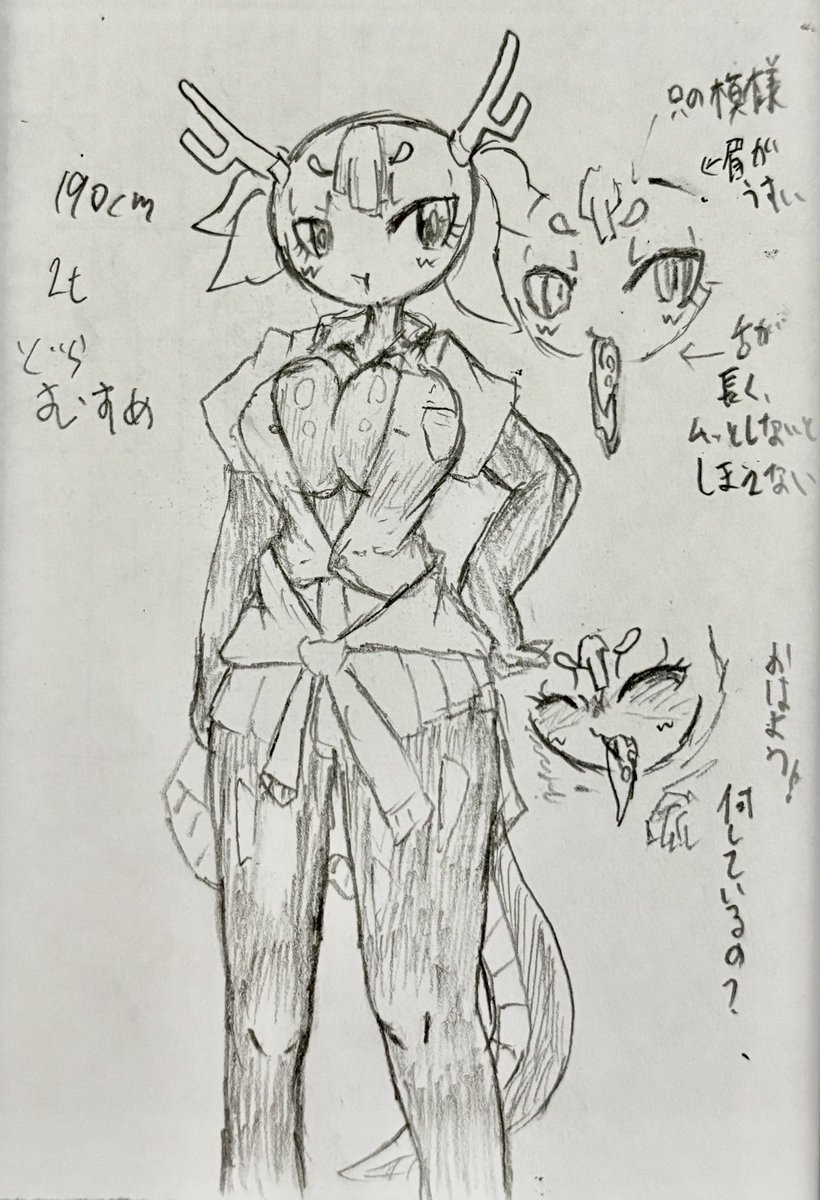 190cm
2t
どら
むすめ
只の模様
←眉が
うすい
←舌が
長く、
ムッとしないと
しまえない
おはよう!
何しているの?